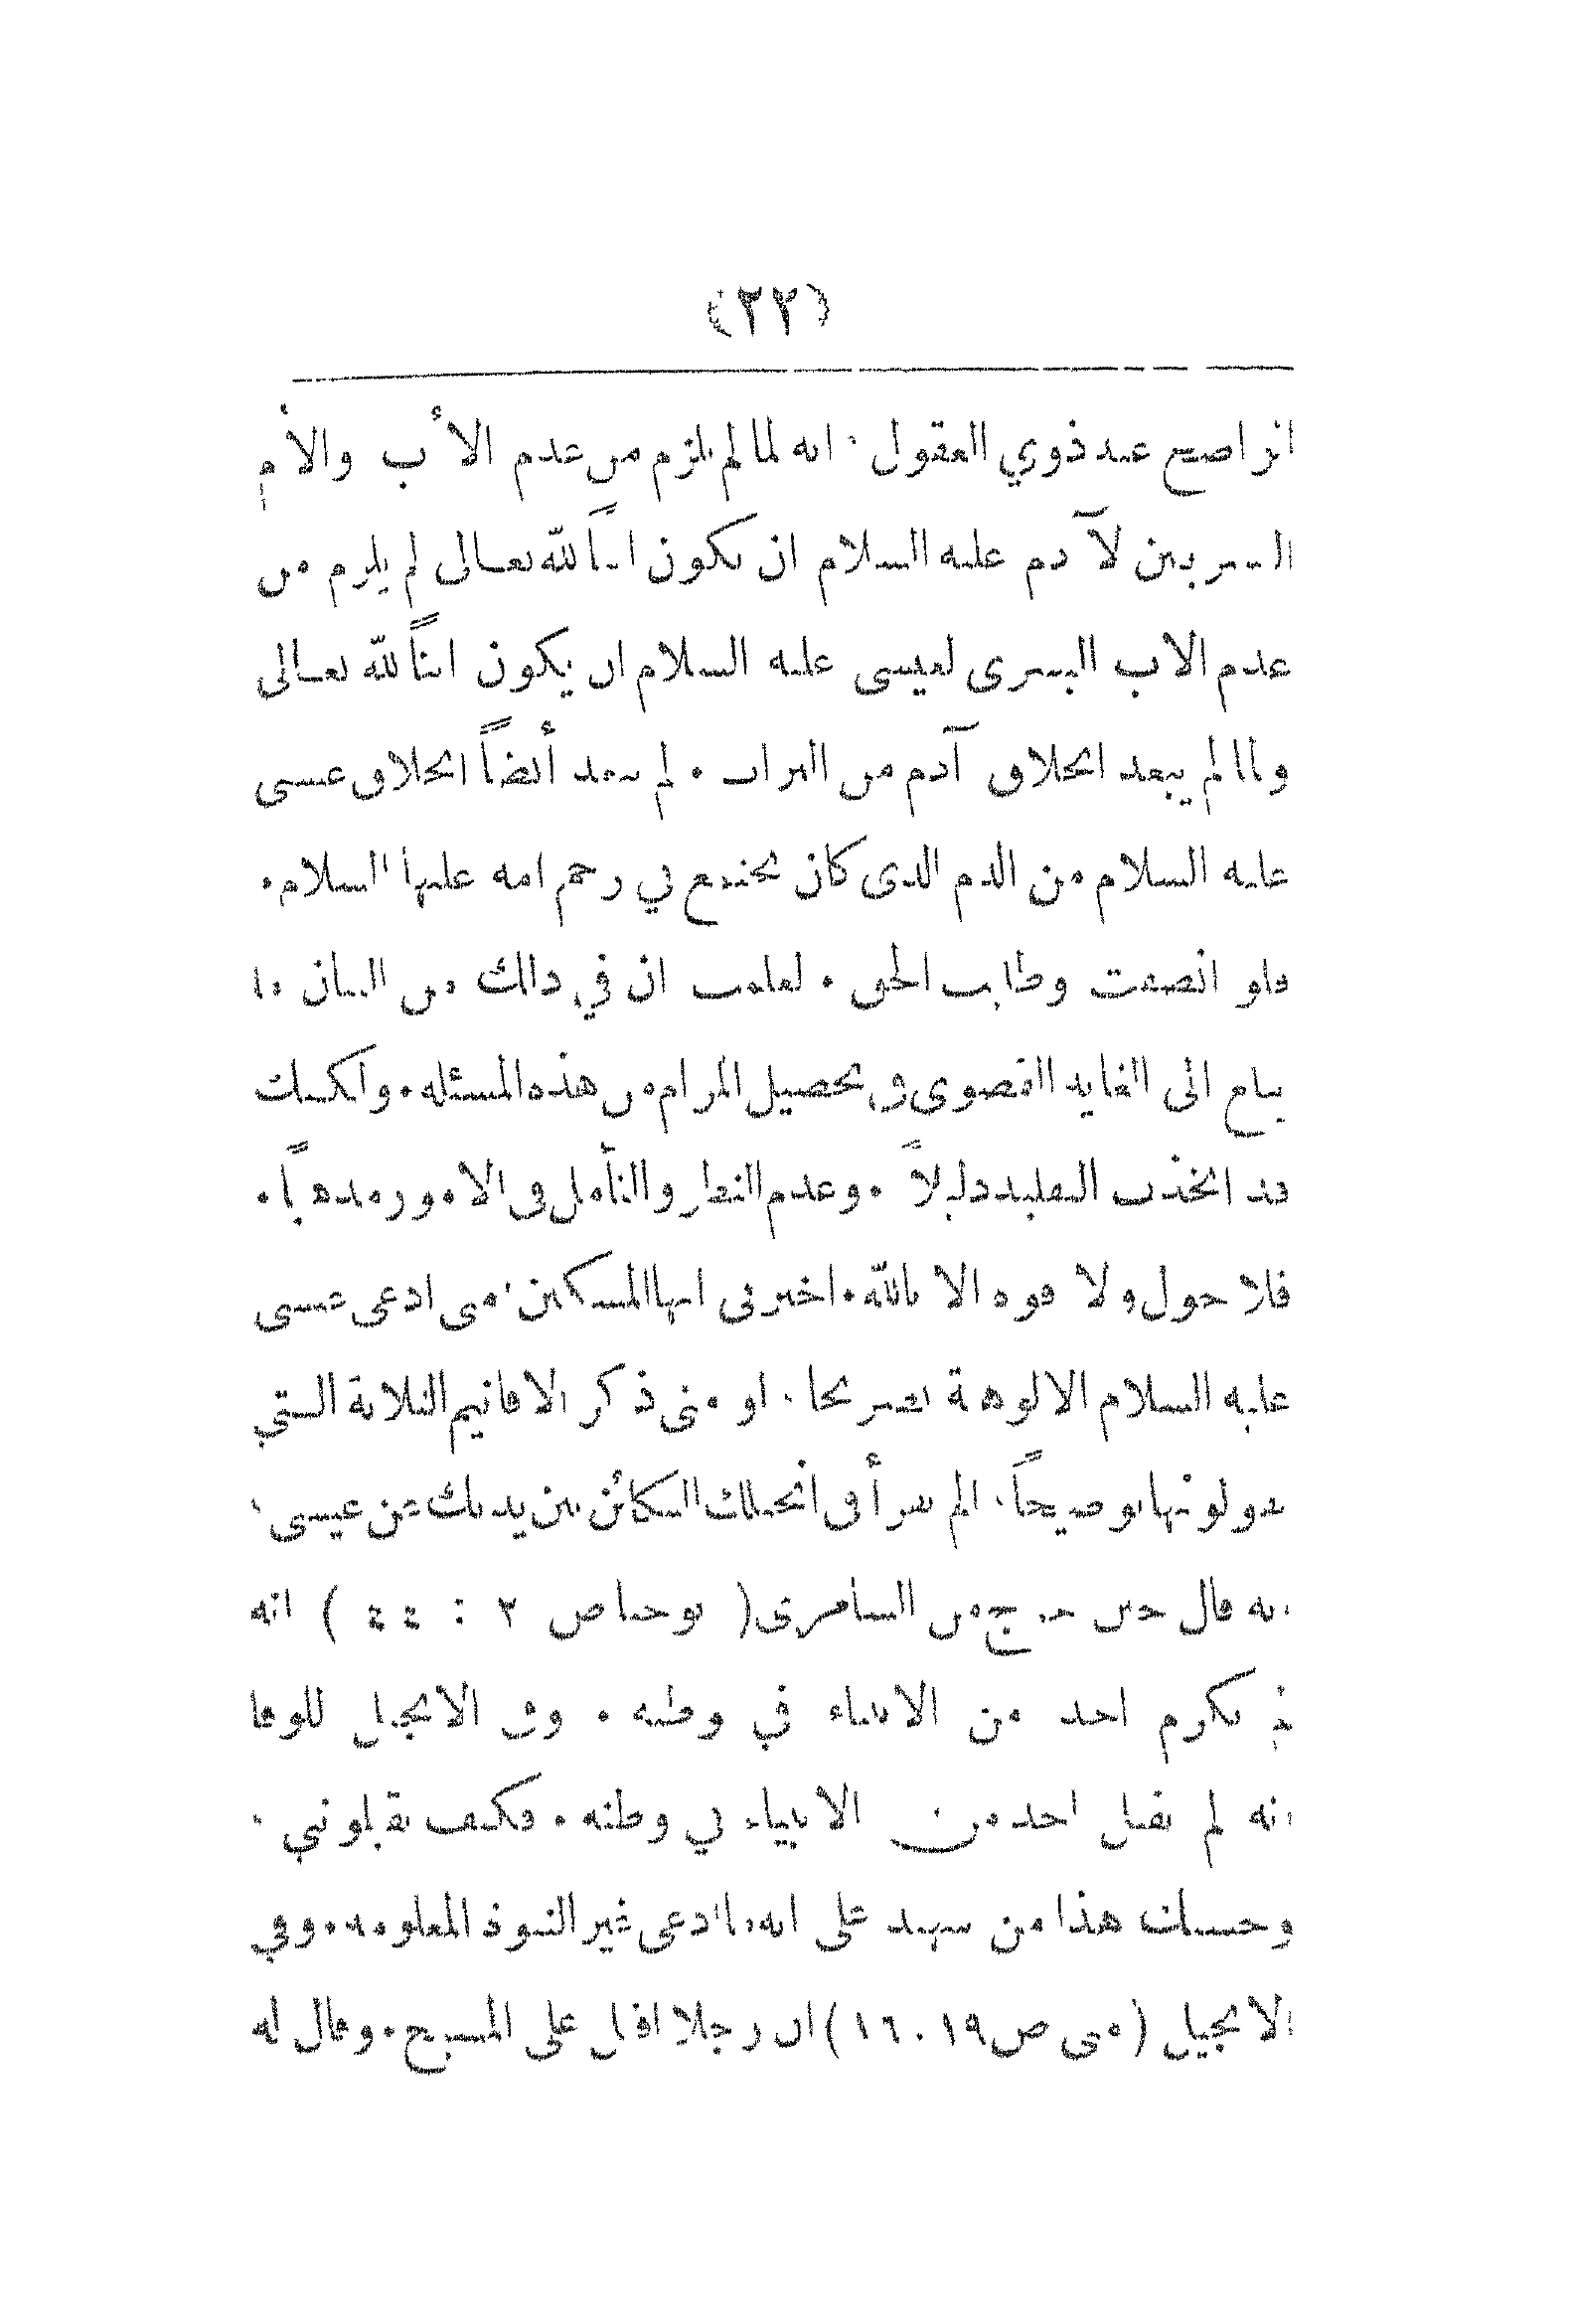 ﴿٢٢﴾
عند ذوي العقول · انه لما لم يلزم من عدم الأب والأم
البشريين لآدم عليه السلام ان يكون ابناً لله تعالى لم يلزم من
عدم الاب البشرى لعيسى عليه السلام ان يكون ابناً لله تعالى
ولما لم يبعد انخلاق آدم من التراب · لم يبعد أيضاً انخلاق عيسى
عليه السلام من الدم الذى كان يجتمع في رحم امه عليها السلام ·
فلو انصفت وطلبت الحق · لعلمت ان في ذلك من البيان ما
يبلغ الى الغاية القصوى في تحصيل المرام من هذه المسئلة · ولكنك
قد اتخذت التقليد دليلاً · وعدم النظر والتأمل في الامور مذهباً ·
فلا حول ولا قوة الا بالله · اخبرني ايها المسكين · متى ادعى عيسى
عليه السلام الالوهية تصريحا · او متى ذكر الاقانيم الثلاثة التي
تقولونها توضيحاً · الم تقرأ في انجيلك الكائن بين يديك عن عيسى ·
انه قال حين خرج من السامرى ( يوحنا ص ٢ : ٤٤ ) انه
لم يكرم احد من الانبياء في وطنه · وفي الانجيل للوقا
انه لم يقبل احد من الانبياء في وطنه · فكيف تقبلوني ·
وحسبك هذا من شهيد على انه ما ادعى غير النبوة المعلومة · وفي
الانجيل ( متى ص ١٩ · ١٦ ) ان رجلا اقبل على المسيح · وقال له